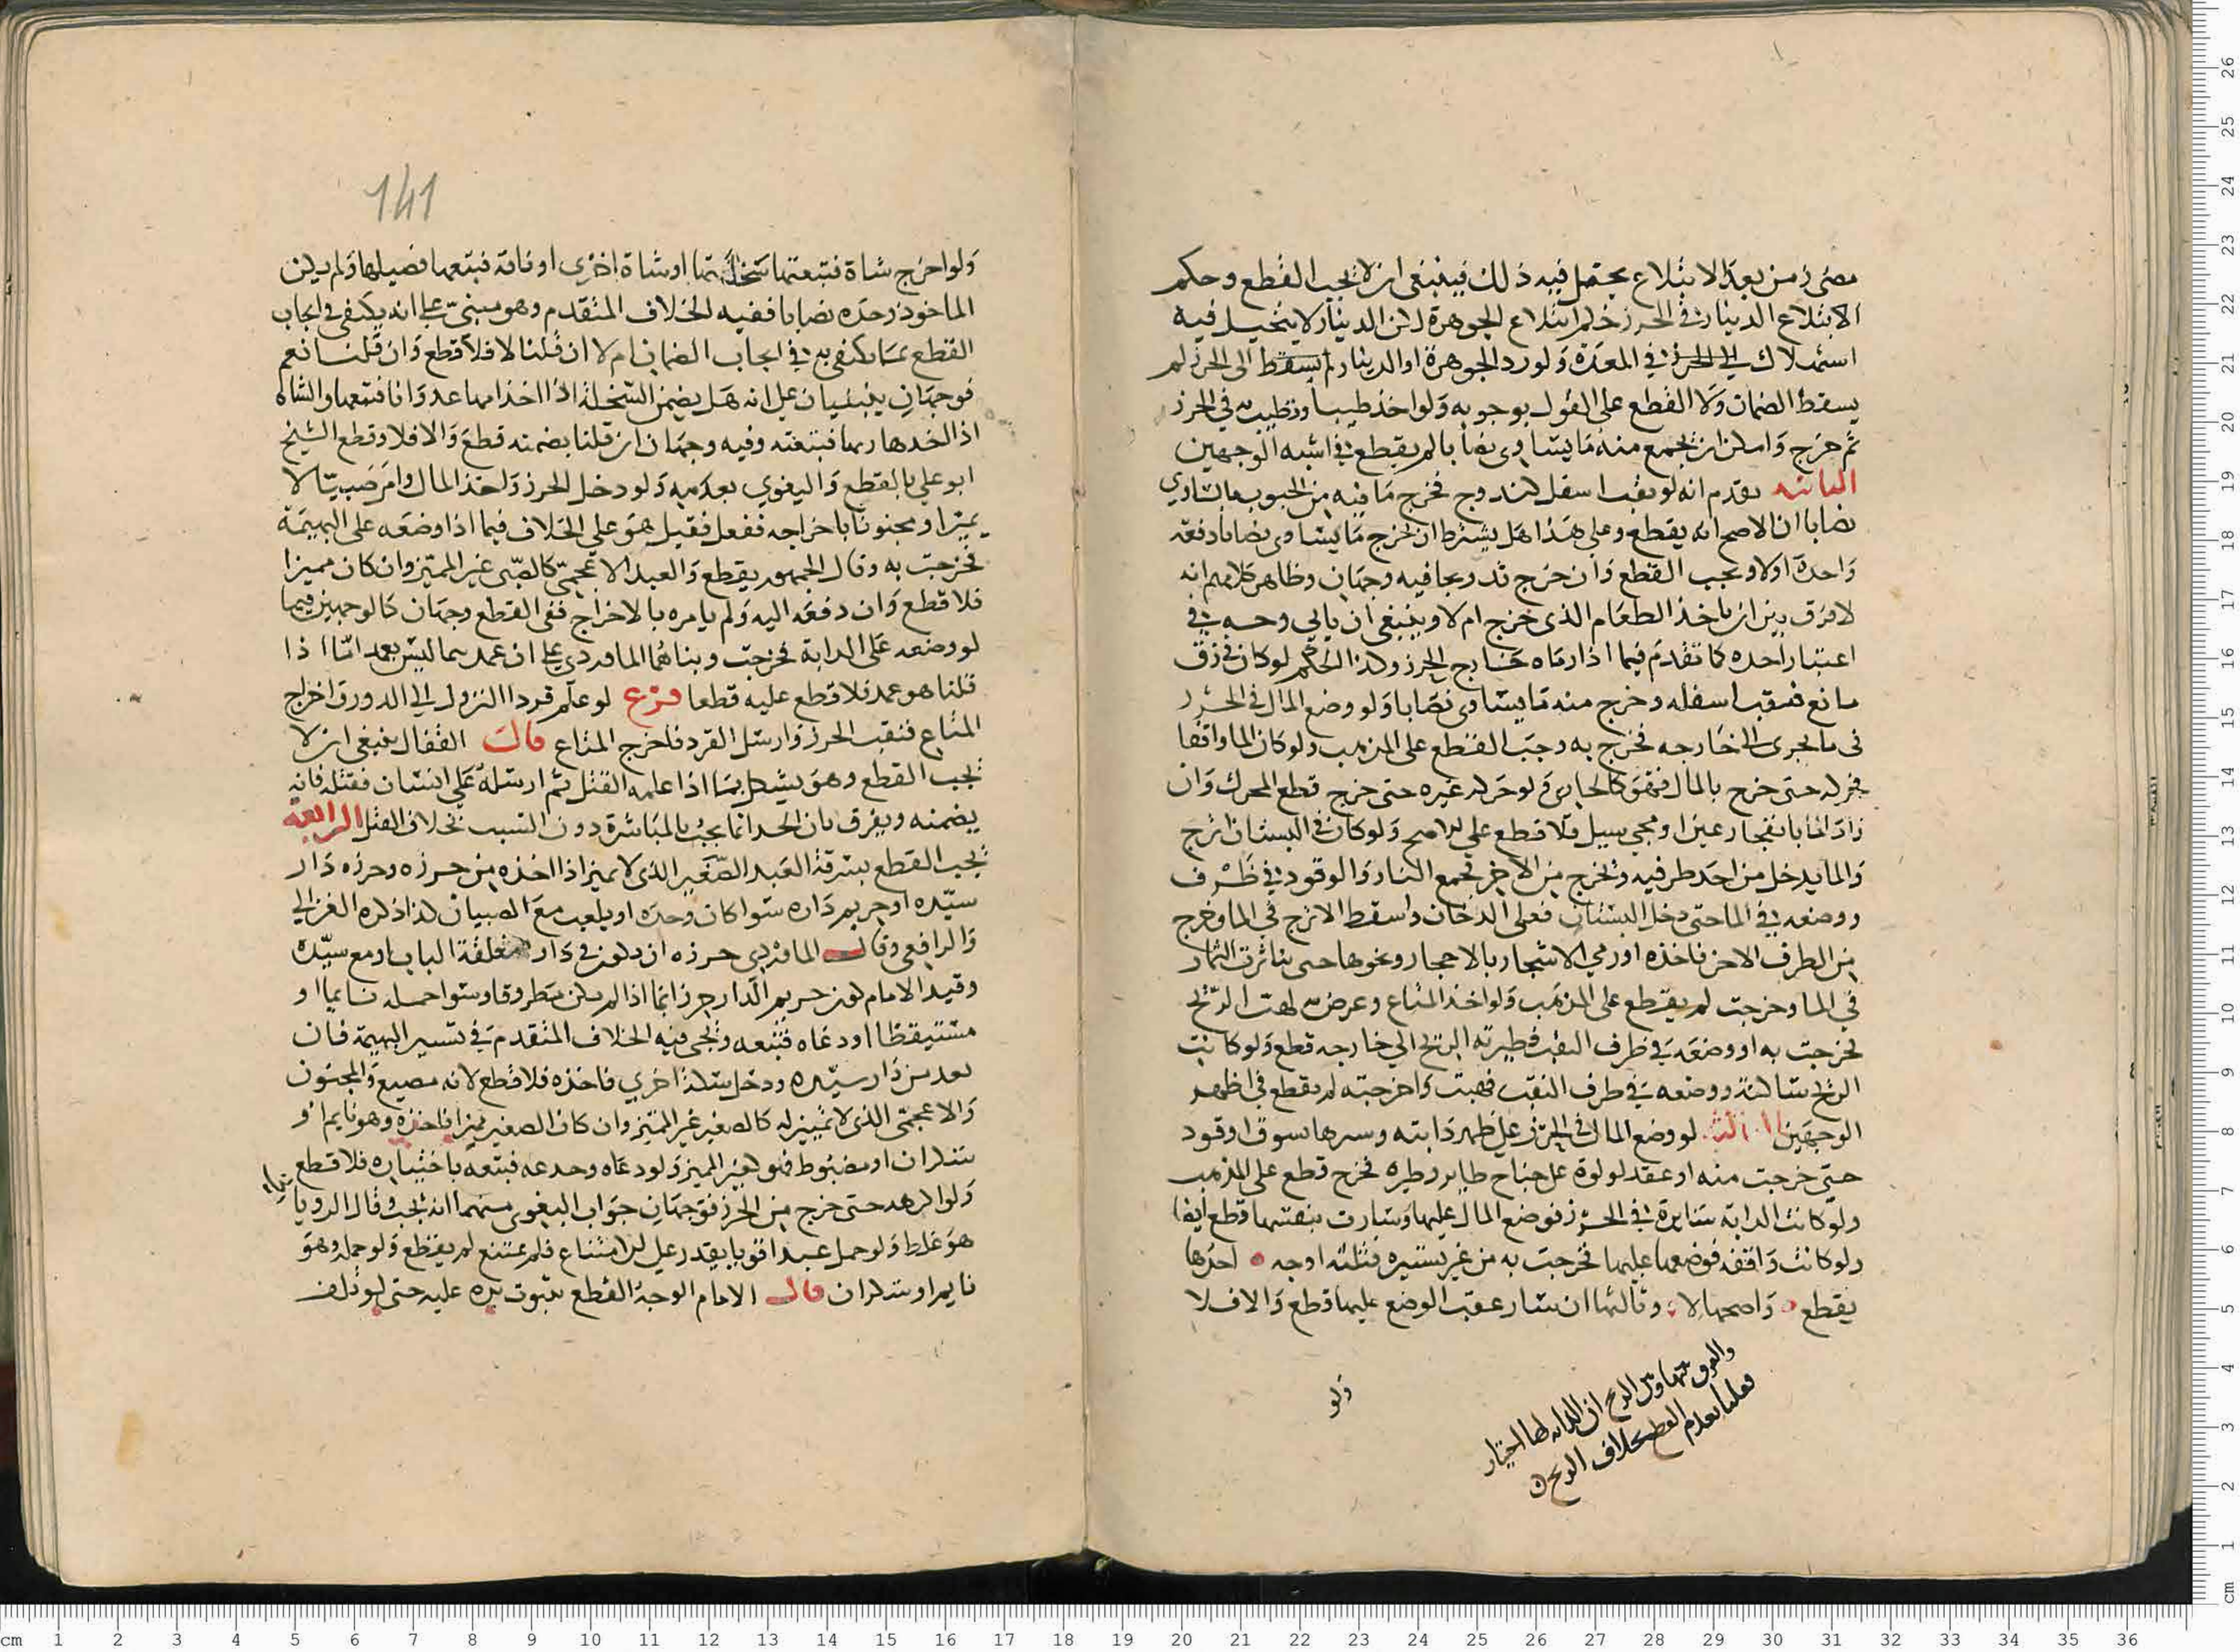 مضى زمن بعد الابتلاع يحتمل فيه ذلك فينبغي ان لا يجب القطع وحكم
الابتلاع الدينار في الحرز حكم ابتلاع الجوهرة لكن الدينار لا يتخيل فيه
استهلاك في المعدة ولو رد الجوهرة او الدينار لم يسقط الى الحرز لم
يسقط الضمان ولا القطع على القول بوجوبه ولو اخذ طيبا وتطيب به في الحرز
ثم خرج وامكن ان يجمع منه ما يساوي نصابا لم يقطع في اشبه الوجهين
الثانية تقدم انه لو نقب اسفل كندوج فخرج ما فيه من الحبوب ما يساوي
نصابا ان الاصح انه يقطع وعلى هذا هل يشترط ان يخرج ما يساوي نصابا دفعة
واحدة او لا ويجب القطع وان خرج تدريجا فيه وجهان وظاهر كلامهم انه
لا فرق بين ان ياخذ الطعام الذي خرج ام لا وينبغي ان ياتي وجه في
اعتبار اخذه كما تقدم فيما اذا رماه خارج الحرز وكذا الحكم لو كان في زق
مائع فنقب اسفله وخرج منه ما يساوي نصابا ولو وضع المال في الحرز
في ما يجري الى خارجه فخرج به وجب القطع على المذهب ولو كان الما واقفا
فحركه حتى خرج بالمال فهو كالجاري ولو حركه غيره حتى خرج قطع المحرك وان
زاد الما بانفجار عين او مجي سيل فلا قطع على الاصح ولو كان في البستان اترج
والما يدخل من احد طرفيه ويخرج من الاخر فجمع النار والوقود في ظرف
ووضعه في الما حتى دخل البستان فعلى الدخان واسقط الاترج في الما وخرج
من الطرف الاخر فاخذه او رمي الاشجار بالاحجار ونحوها حتى تناثرت الثمار
في الما وخرجت لم يقطع على المذهب ولو اخذ المتاع وعرضه لهبت الريح
فخرجت به او وضعه في طرف النقب فطيرته الريح الى خارجه قطع ولو كانت
الريح ساكنة ووضعه في طرف النقب فهبت واخرجته لم يقطع في اظهر
الوجهين الثالثة لو وضع المال في الحرز على ظهر دابته وسيرها بسوق او قود
حتى خرجت منه او عقد لولوة على جناح طاير وطيره فخرج قطع على المذهب
ولو كانت الدابة سايرة في الحرز فوضع المال عليها وسارت بنفسها قطع ايضا
ولو كانت واقفة فوضعها عليها فخرجت به من غير تسييره فثلثة اوجه احدها
يقطع واصحها لا وثالثها ان سار عقب الوضع عليها قطع والا فلا
والفرق بينها وبين الريح ان الدابة لها اختيار
فعللنا بعدم القطع بخلاف الريح
ولو
141
ولو اخرج شاة فتبعتها سخلتها او شاة اخرى او ناقة فتبعها فصيلها ولم يكن
الماخوذ وحده نصابا ففيه الخلاف المتقدم وهو مبني على انه يكتفى في ايجاب
القطع بما يكتفى به في ايجاب الضمان ام لا ان قلنا لا فلا قطع وان قلنا نعم
فوجهان ينبنيان على انه هل يضمن السخلة اذا اخذ امها عدوانا فتبعها والشاه
اذا اخذها ربها فتبعته وفيه وجهان ان قلنا يضمنه قطع والا فلا وقطع الشيخ
ابو علي بالقطع والبغوي بعدمه ولو دخل الحرز واخذ المال وامر صبيا لا
يميز او مجنونا باخراجه ففعل فقيل هو على الخلاف فيما اذا وضعه على البهيمة
فخرجت به وقال الجمهور يقطع والعبد الاعجمي كالصبي غير المميز وان كان مميزا
فلا قطع وان دفعه اليه ولم يامره بالاخراج ففي القطع وجهان كالوجهين فيما
لو وضعه على الدابة فخرجت وبناهما الماوردي على ان عمده هما ليس بعمد اما اذا
قلنا هو عمد فلا قطع عليه قطعا فرع لو علم قردا النزول الى الدور واخراج
المتاع فنقب الحرز وارسل القرد فاخرج المتاع قال القفال ينبغي ان لا
يجب القطع وهو يشكل بما اذا علمه القتل ثم ارسله على انسان فقتله فانه
يضمنه ويفرق بان الحد انما يجب بالمباشرة دون السبب بخلاف القتل الرابعة
يجب القطع بسرقة العبد الصغير الذي لا يميز اذا اخذه من حرزه وحرزه دار
سيده او حريم داره سوا كان وحده او يلعب مع الصبيان كذا ذكره الغزالي
والرافعي وقال الماوردي حرزه ان يكون في دار مغلقة الباب او مع سيده
وقيد الامام كون حريم الدار حرزا بما اذا لم يكن مطروقا وسوا حمله نايما او
مستيقظا او دعاه فتبعه ويجي فيه الخلاف المتقدم في تسيير البهيمة فان
بعد من دار سيده ودخل سكة اخرى فاخذه فلا قطع لانه مضيع والمجنون
والاعجمي الذي لا تمييز له كالصغير غير المميز وان كان الصغير مميزا فاخذه وهو نايم او
سكران او مضبوط فهو كغير المميز ولو دعاه وخدعه فتبعه باختياره فلا قطع
ولو اكرهه حتى خرج من الحرز فوجهان جواب البغوي منهما انه يجب وقال الروياني
هو غلط ولو حمل عبدا قويا يقدر على الامتناع فلم يمتنع لم يقطع ولو حمله وهو
نايم او سكران قال الامام الوجه القطع بثبوت يده عليه حتى لو تلف